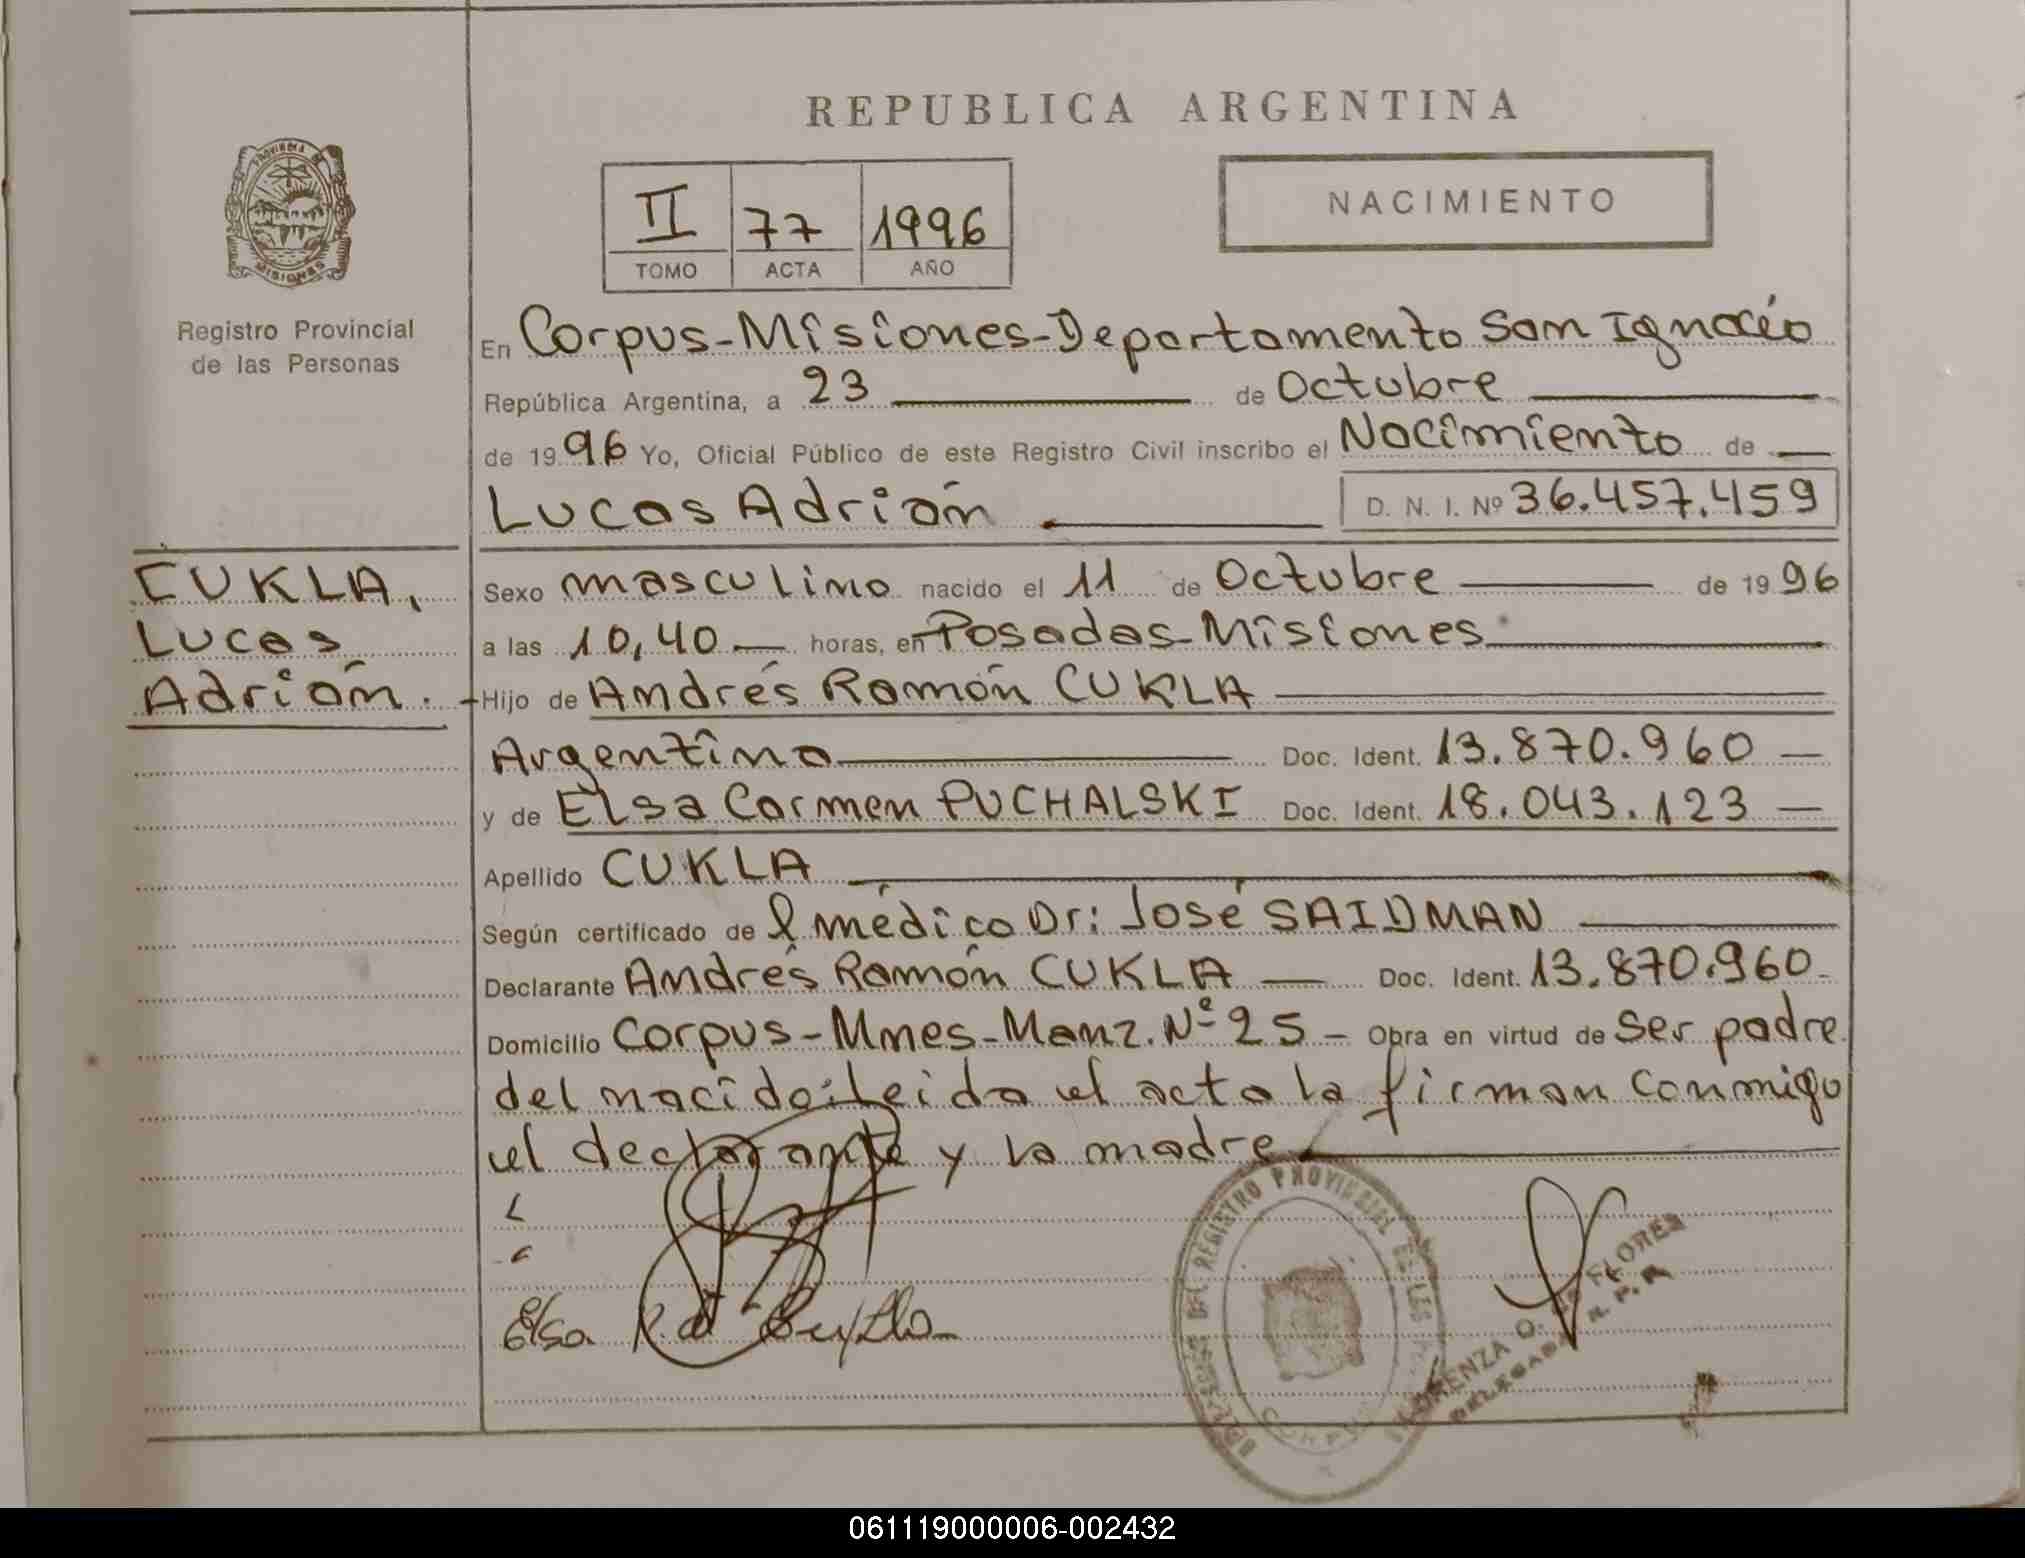 REPUBLICA ARGENTINA
PROVINCIA DE
MISIONES
Registro Provincial
de las Personas
II 77 1996
TOMO ACTA AÑO
NACIMIENTO
En Corpus-Misiones-Departamento San Ignacio
República Argentina, a 23 de Octubre
de 1996 Yo, Oficial Público de este Registro Civil inscribo el Nacimiento de
Lucas Adrián D. N. I. Nº 36.457.459
CUKLA,
Lucas
Adrián.
Sexo masculino nacido el 11 de Octubre de 1996
a las 10,40 horas, en Posadas-Misiones
Hijo de Andrés Ramón CUKLA
Argentino Doc. Ident. 13.870.960
y de Elsa Carmen PUCHALSKI Doc. Ident. 18.043.123
Apellido CUKLA
Según certificado de l médico Dr: José SAIDMAN
Declarante Andrés Ramón CUKLA Doc. Ident. 13.870.960
Domicilio Corpus-Mnes-Manz. Nº 25 - Obra en virtud de ser padre
del nacido: Leida el acta la firman conmigo
el declarante y la madre
Elsa
DEL REGISTRO PROVINCIAL DE LAS
CORPUS
FLORES
DELEGADA R. P. P.
061119000006-002432